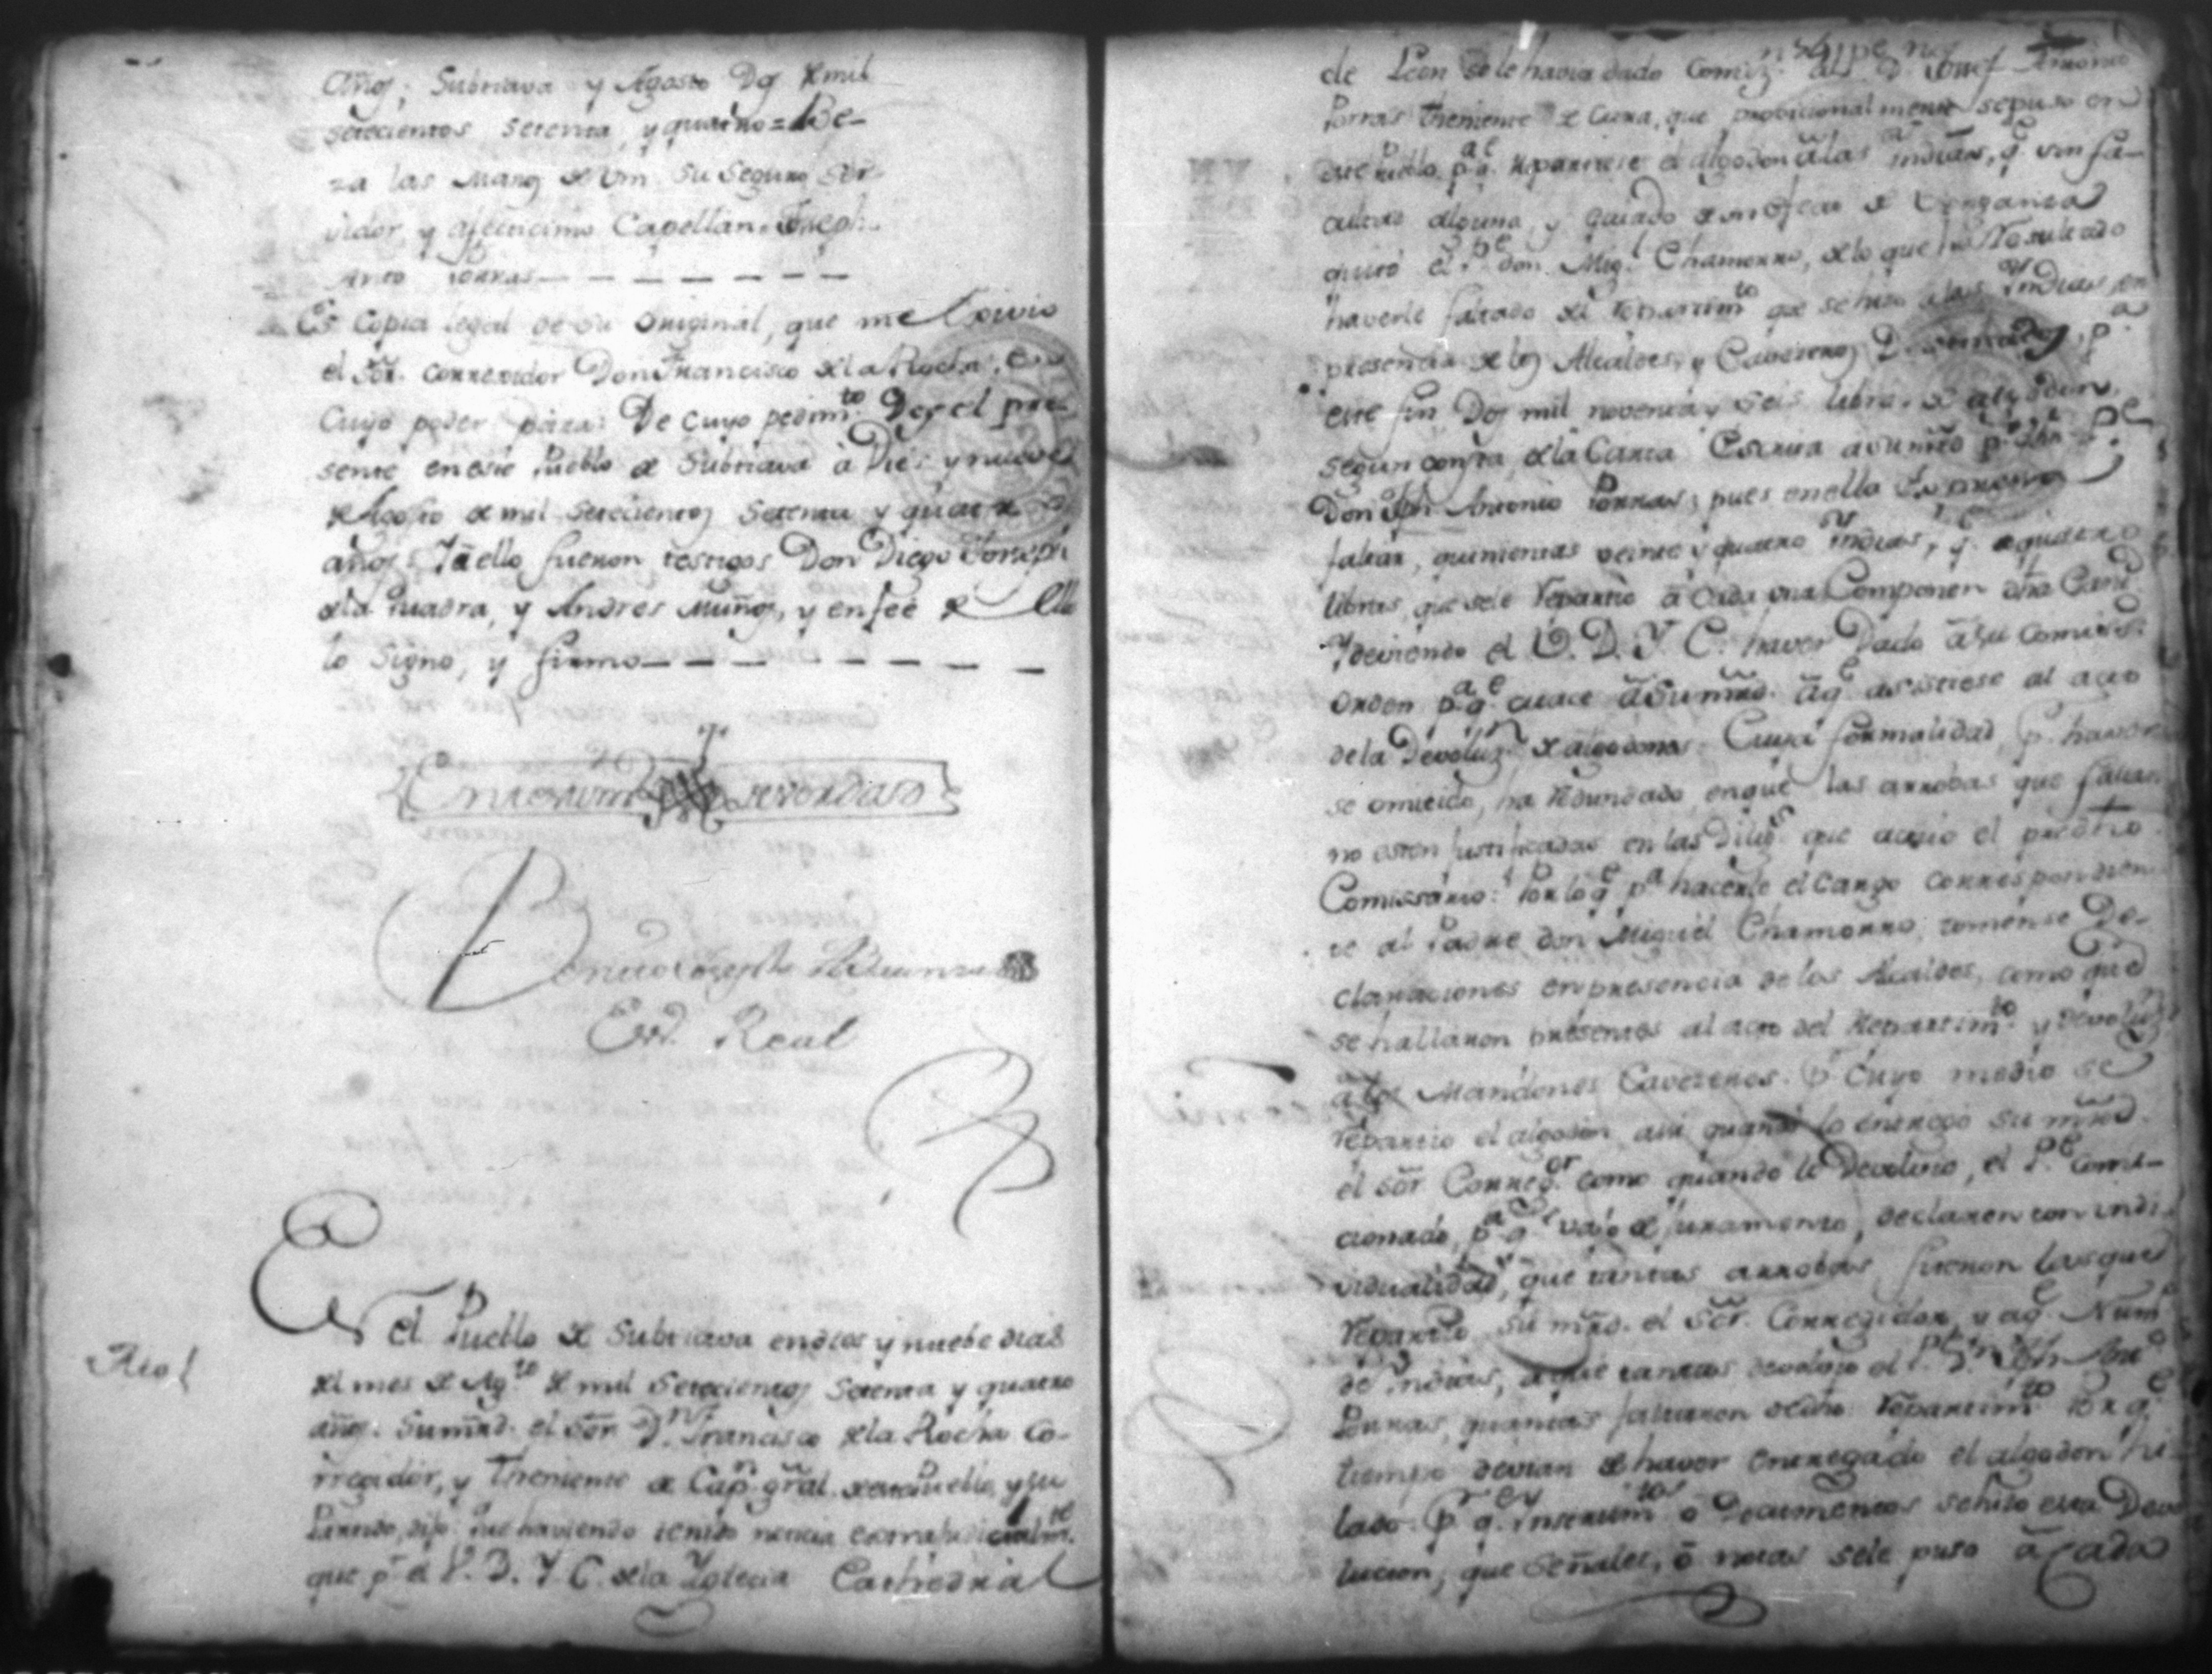 años; Subtiava y Agosto Dos de mil
setecientos setenta, y quatro = Be-
za las Manos de Vm su seguro Ser-
vidor y afecticimo Capellan = Joseph
Anto Porras
Es Copia legal de su original, que me exivio
el Sõr. Correxidor Don Francisco de la Rocha, en
Cuyo poder paza: De cuyo pedimto. Doy el pre-
sente en este Pueblo de Subtiava à Diez y nueve
de Agosto de mil setecientos setenta y quatro
años. Ya ello fueron testigos Don Diego Joseph
de la Quadra, y Andres Muños, y en feè de Ello
lo signo, y firmo
En testim de verdad
Esn. Real
En el Pueblo de Subtiava en dies y nuebe dias
del mes de Agto. de mil setecientos setenta y quatro
años. Su mrd. el Sõr Dn. Francisco de la Rocha Co-
rregidor, y Theniente de Capn. gral. de este Pueblo, y su
Partido, dijo: que haviendo tenido noticia extrajudicialmte.
que pr. el V. D. Y C. de la Yglecia Cathedral
de Leon se le havia dado Comizn. al Pe. Dn. Josef Antonio
Porras Theniente de Cura, que provicionalmente se puso en
este Pueblo pa. qe. repartiese el algodon à las indias, qe. sin fa-
cultad alguna, y guiado de un efecto de Venganza
quitó el Pe. don Migl. Chamorro, de lo que ha Resultado
haverle faltado del repartimto. que se hiso a las Yndias, en
presencia de los Alcaldes, y Cavezeros pa.
este fin Dos mil noventa y seis libras de algodon,
segun consta de la Carta Escrita a su mrd. pr. dho. Pe.
Don Jph Antonio Porras; pues en ella
faltar, quinientas veinte y quatro indias, qe. a quatro
libras, que se le repartió à cada una Componen dha Cantd.
Y deviendo el V. D. Y. C. haver Dado à su Comisdo.
orden pa. qe. citace à Su mrd. à qe. asistiese al acto
de la Devoluzn. de algodones: Cuya formalidad, pr. haver
se omitido, ha redundado en que las arrobas que faltan
no esten justificadas en las Diligs. que actuó el precitdo.
Comissario: Por lo qe. pa. hacerle el Cargo correspondien-
te al Padre don Miguel Chamorro, tomense De-
claraciones en presencia de los Alcaldes, como que
se hallaron presentes al acto del Repartimto. y Devoluzn.
a los Mandones Cavezeros. pr. Cuyo medio se
repartió el algodon, asi quando lo entregó su mrd.
el sõr Corregor. como quando le Devolvio, el Pe. Comi-
cionado, pa. qe. vajo de juramento, declaren con indi-
vidualidad, que tantas arrobas fueron las que
repartio su mrd. el Sõr. Corregidor, y a qe. Numo.
de Yndias, a que tantas devolvio el Pe. Dn. Jph Anto.
Porras, quantas faltaron de dho. repartimto. Por qe.
tiempo devian de haver entregado el algodon hi-
lado. pr. qe. Instrumtos. o Documentos se hiso esta Devo-
lucion, que señales, ò notas se le puso à Cada